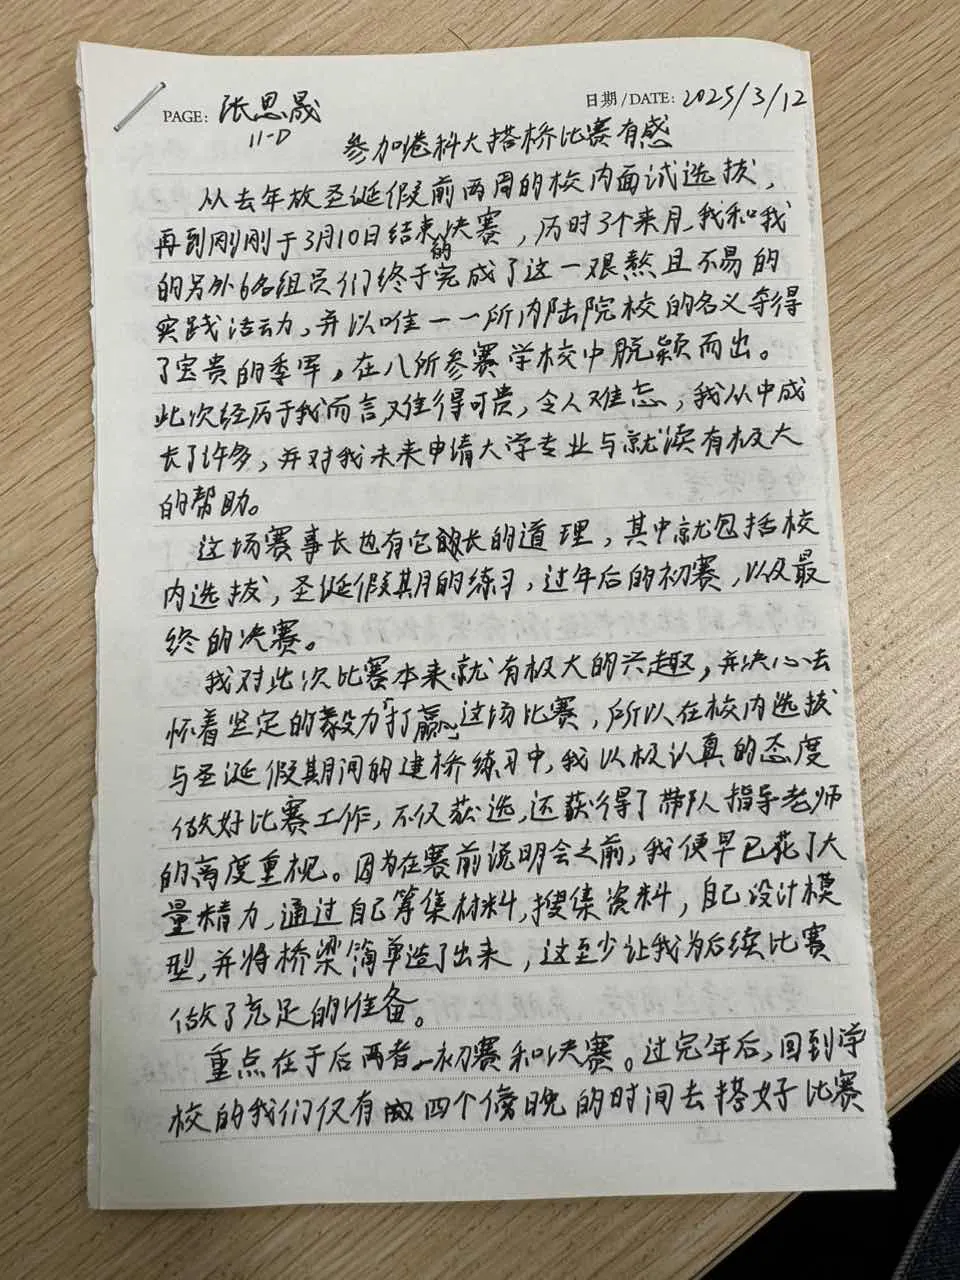 PAGE: 张思晟
日期/DATE: 2025/3/12
11-D
参加港科大搭桥比赛有感
从去年放圣诞假前两周的校内面试选拔，
再到刚刚于3月10日结束的决赛，历时3个来月，我和我
的另外6名组员们终于完成了这一艰熬且不易的
实践活动，并以唯一一所内陆院校的名义夺得
了宝贵的季军，在八所参赛学校中脱颖而出。
此次经历于我而言，难得可贵，令人难忘，我从中成
长了许多，并对我未来申请大学专业与就读有极大
的帮助。
这场赛事长也有它的长的道理，其中就包括校
内选拔，圣诞假期的练习，过年后的初赛，以及最
终的决赛。
我对此次比赛本来就有极大的兴趣，并决心去
怀着坚定的毅力打赢这场比赛，所以在校内选拔
与圣诞假期间的建桥练习中，我以极认真的态度
做好比赛工作，不仅获选，还获得了带队指导老师
的高度重视。因为在赛前说明会之前，我便早已花了大
量精力，通过自己筹集材料，搜集资料，自己设计模
型，并将桥梁简单造了出来，这至少让我为后续比赛
做了充足的准备。
重点在于后两者—初赛和决赛。过完年后，回到学
校的我们仅有四个傍晚的时间去搭好比赛